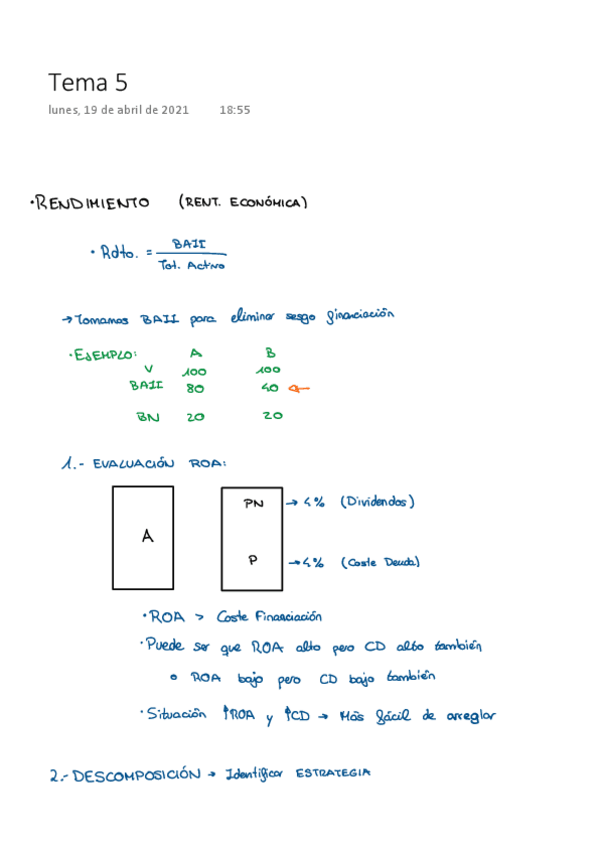 Tema 5
lunes, 19 de abril de 2021 18:55
• RENDIMIENTO (RENT. ECONÓMICA)
• Rdto. = BAII
Tot. Activo
→ Tomamos BAII para eliminar sesgo financiación
• EJEMPLO: A B
V 100 100
BAII 80 40 ←
BN 20 20
1.- EVALUACIÓN ROA:
PN → 4% (Dividendos)
A
P → 4% (Coste Deuda)
• ROA > Coste Financiación
• Puede ser que ROA alto pero CD alto también
o ROA bajo pero CD bajo también
• Situación ↑ROA y ↑CD → Más fácil de arreglar
2.- DESCOMPOSICIÓN → Identificar ESTRATEGIA